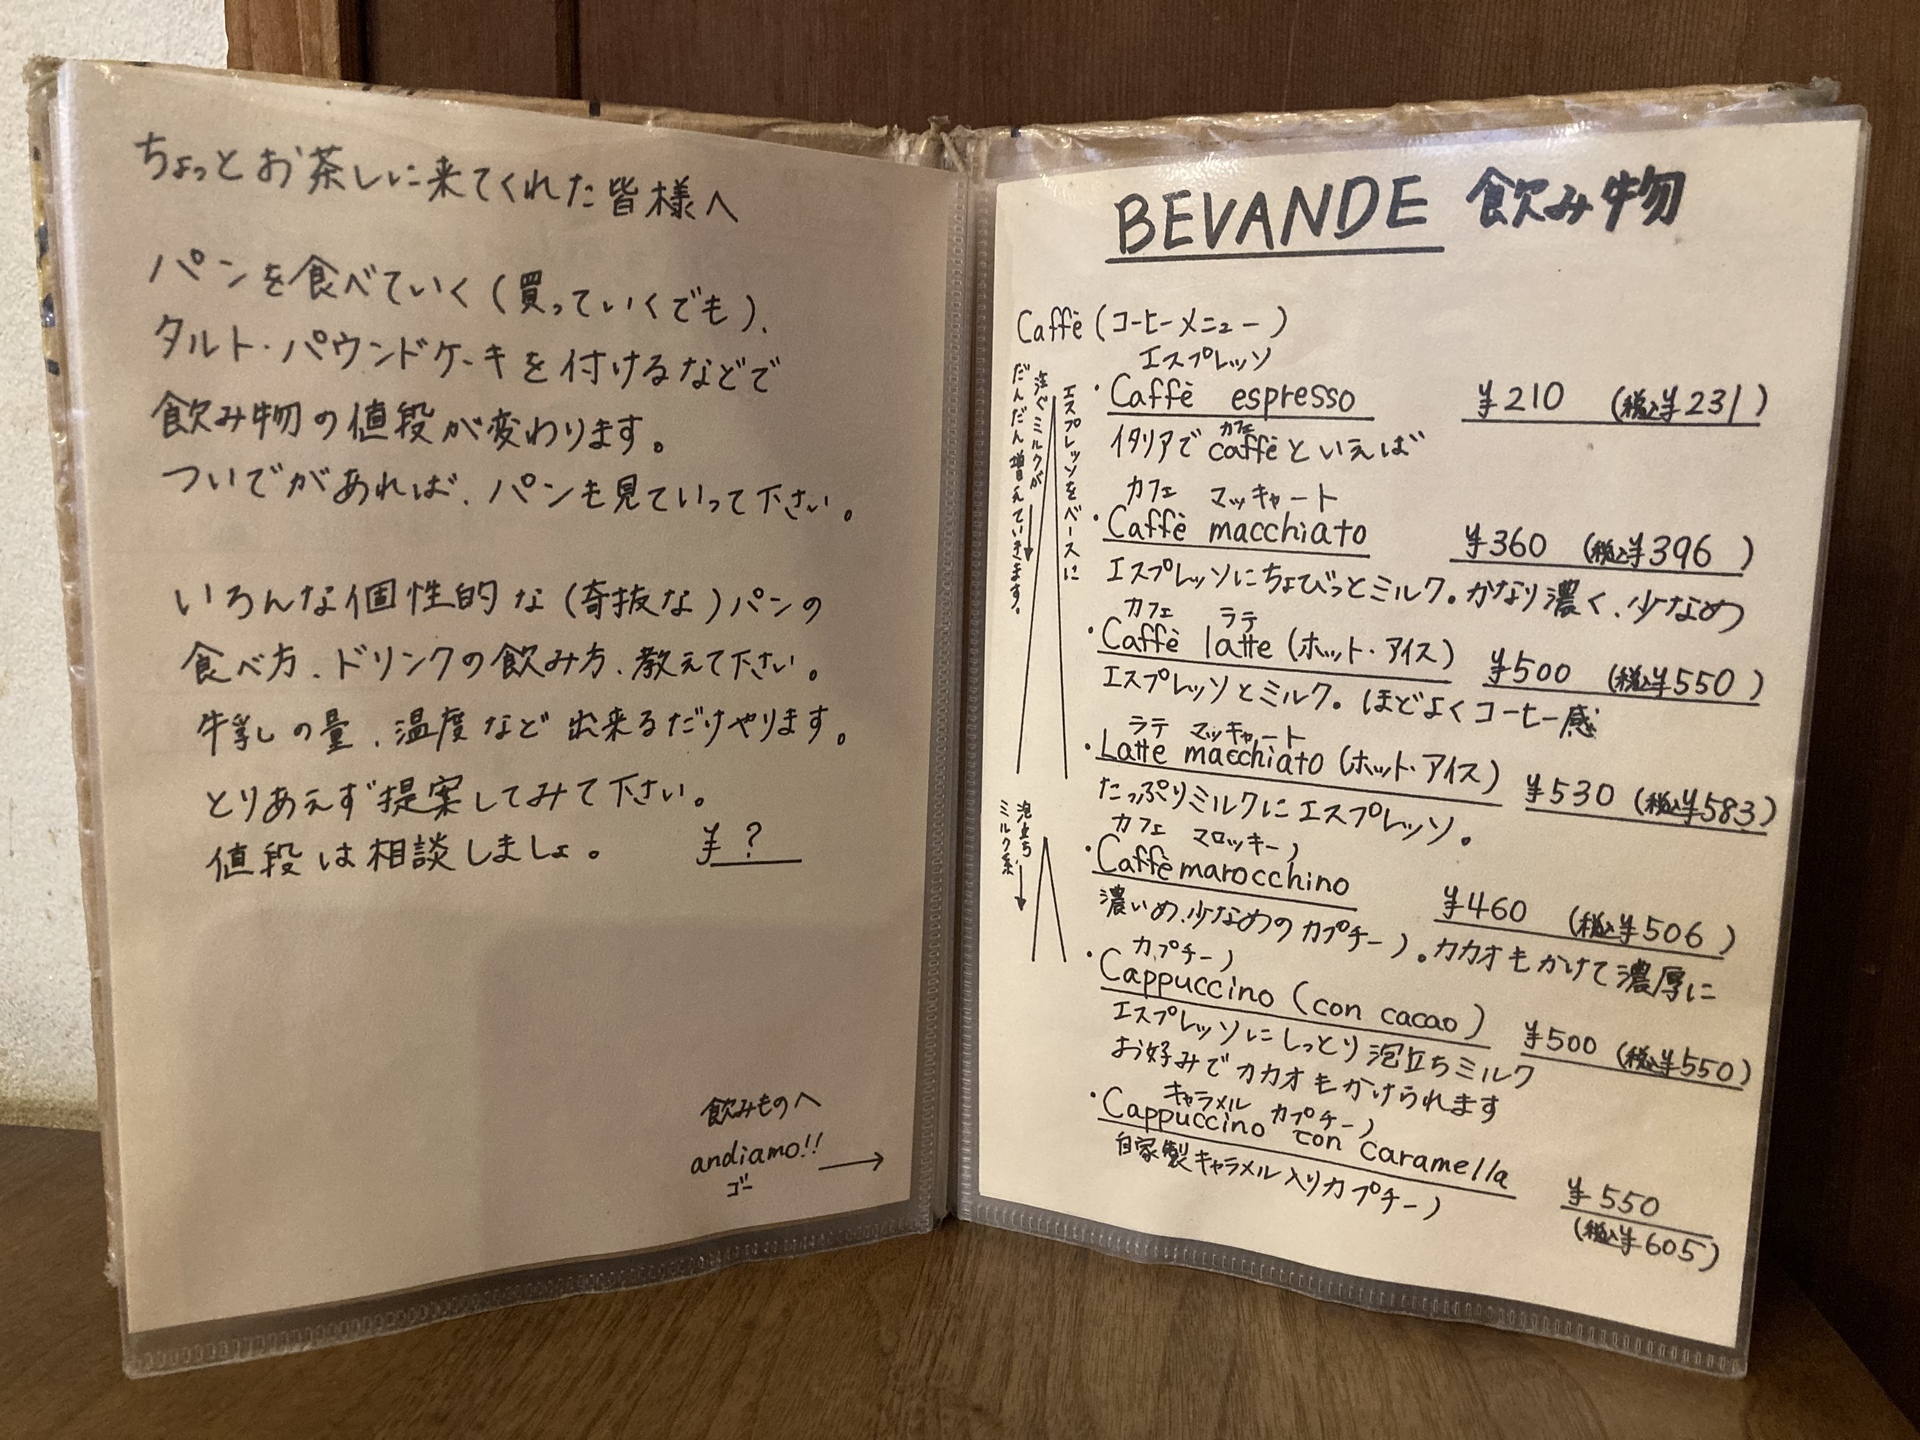 ちょっとお茶しに来てくれた皆様へ
パンを食べていく(買っていくでも)、
タルト・パウンドケーキを付けるなどで
飲み物の値段が変わります。
ついでがあれば、パンも見ていって下さい。
いろんな個性的な(奇抜な)パンの
食べ方、ドリンクの飲み方、教えて下さい。
牛乳の量、温度など出来るだけやります。
とりあえず提案してみて下さい。
値段は相談しましょ。 ¥ ?
飲みものへ
andiamo!! →
ゴー
BEVANDE 飲み物
Caffè (コーヒーメニュー)
エスプレッソをベースに
注ぐミルクが
だんだん増えていきます。
エスプレッソ
・Caffè espresso ¥210 (税込¥231)
カフェ
イタリアで caffè といえば
カフェ マッキャート
・Caffè macchiato ¥360 (税込¥396)
エスプレッソにちょびっとミルク。かなり濃く、少なめ
カフェ ラテ
・Caffè latte (ホット・アイス) ¥500 (税込¥550)
エスプレッソとミルク。ほどよくコーヒー感
ラテ マッキャート
・Latte macchiato (ホット・アイス) ¥530 (税込¥583)
たっぷりミルクにエスプレッソ。
泡立ち
ミルク系
カフェ マロッキーノ
・Caffè marocchino ¥460 (税込¥506)
濃いめ、少なめのカプチーノ。カカオもかけて濃厚に
カプチーノ
・Cappuccino (con cacao) ¥500 (税込¥550)
エスプレッソにしっとり泡立ちミルク
お好みでカカオもかけられます
キャラメル カプチーノ
・Cappuccino con caramella ¥550
(税込¥605)
自家製キャラメル入りカプチーノ